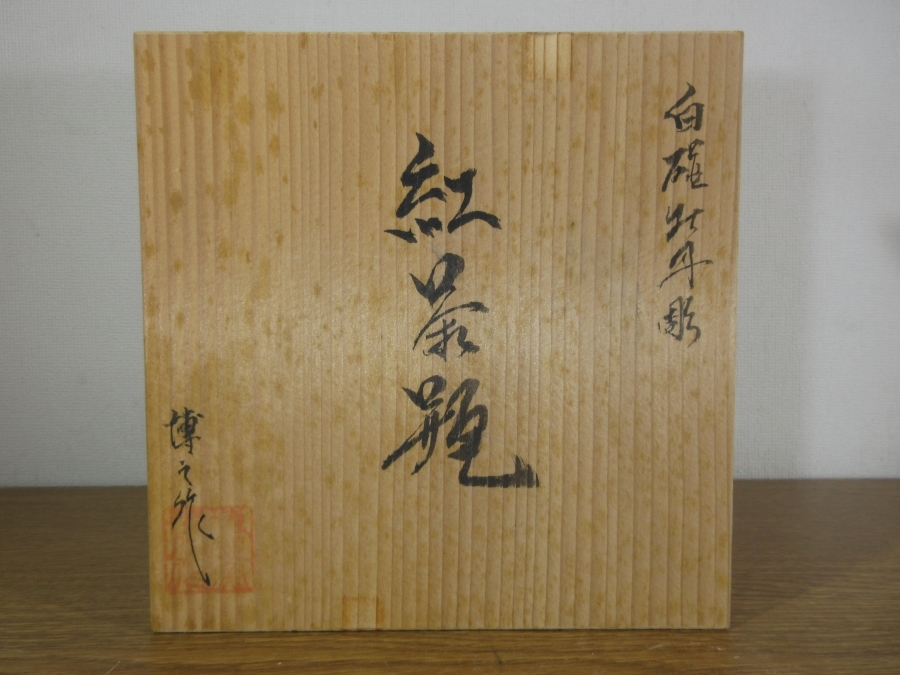 白磁牡丹彫
紅茶瓶
博之作